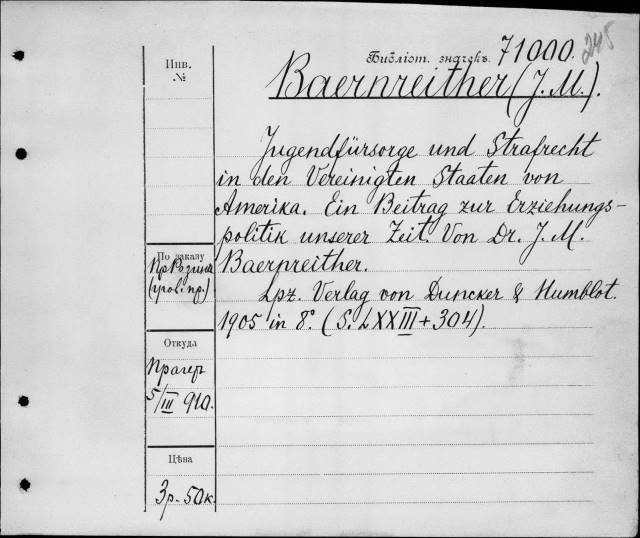 245
Библіот. значекъ 71000.
Инв.
№
Baernreither (J. M.).
Jugendfürsorge und Strafrecht
in den Vereinigten Staaten von
Amerika. Ein Beitrag zur Erziehungs-
politik unserer Zeit. Von Dr. J. M.
Baernreither.
Lpz. Verlag von Duncker & Humblot.
1905 in 8°. (S. LXXIII + 304).
По заказу
Пр Розина
Откуда
Прагеръ
5/III 910.
Цѣна
3 р. 50 к.